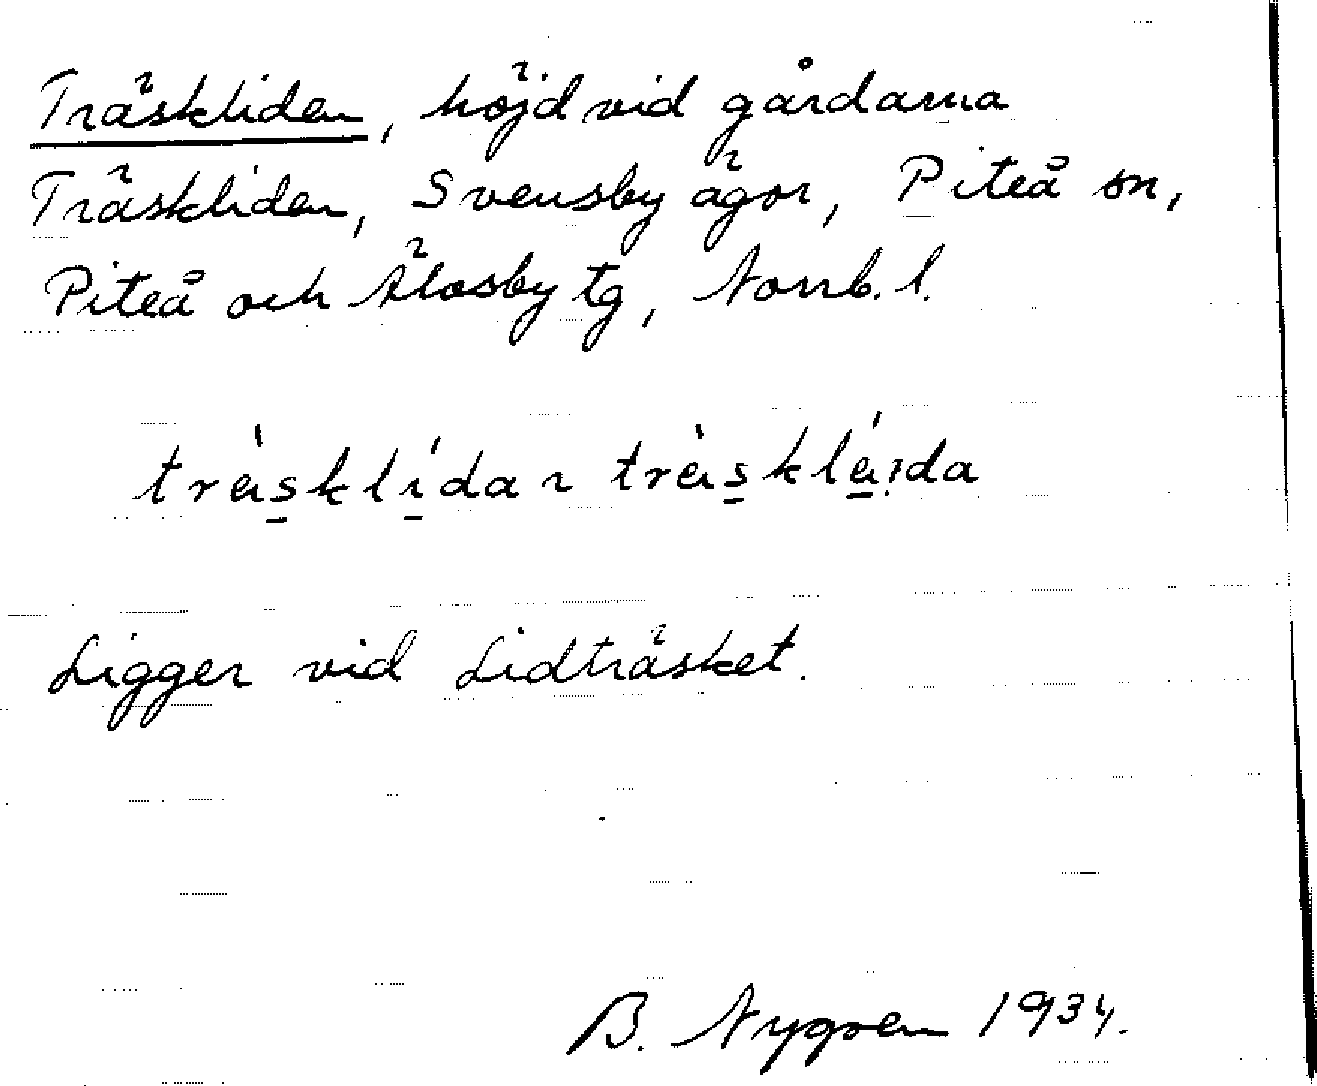 Träskliden, höjd vid gårdarna
Träskliden, Svensby ägor, Piteå sn,
Piteå och Älvsby tg, Norrb. l.
Ligger vid Lidträsket.
B. Nygren 1934.